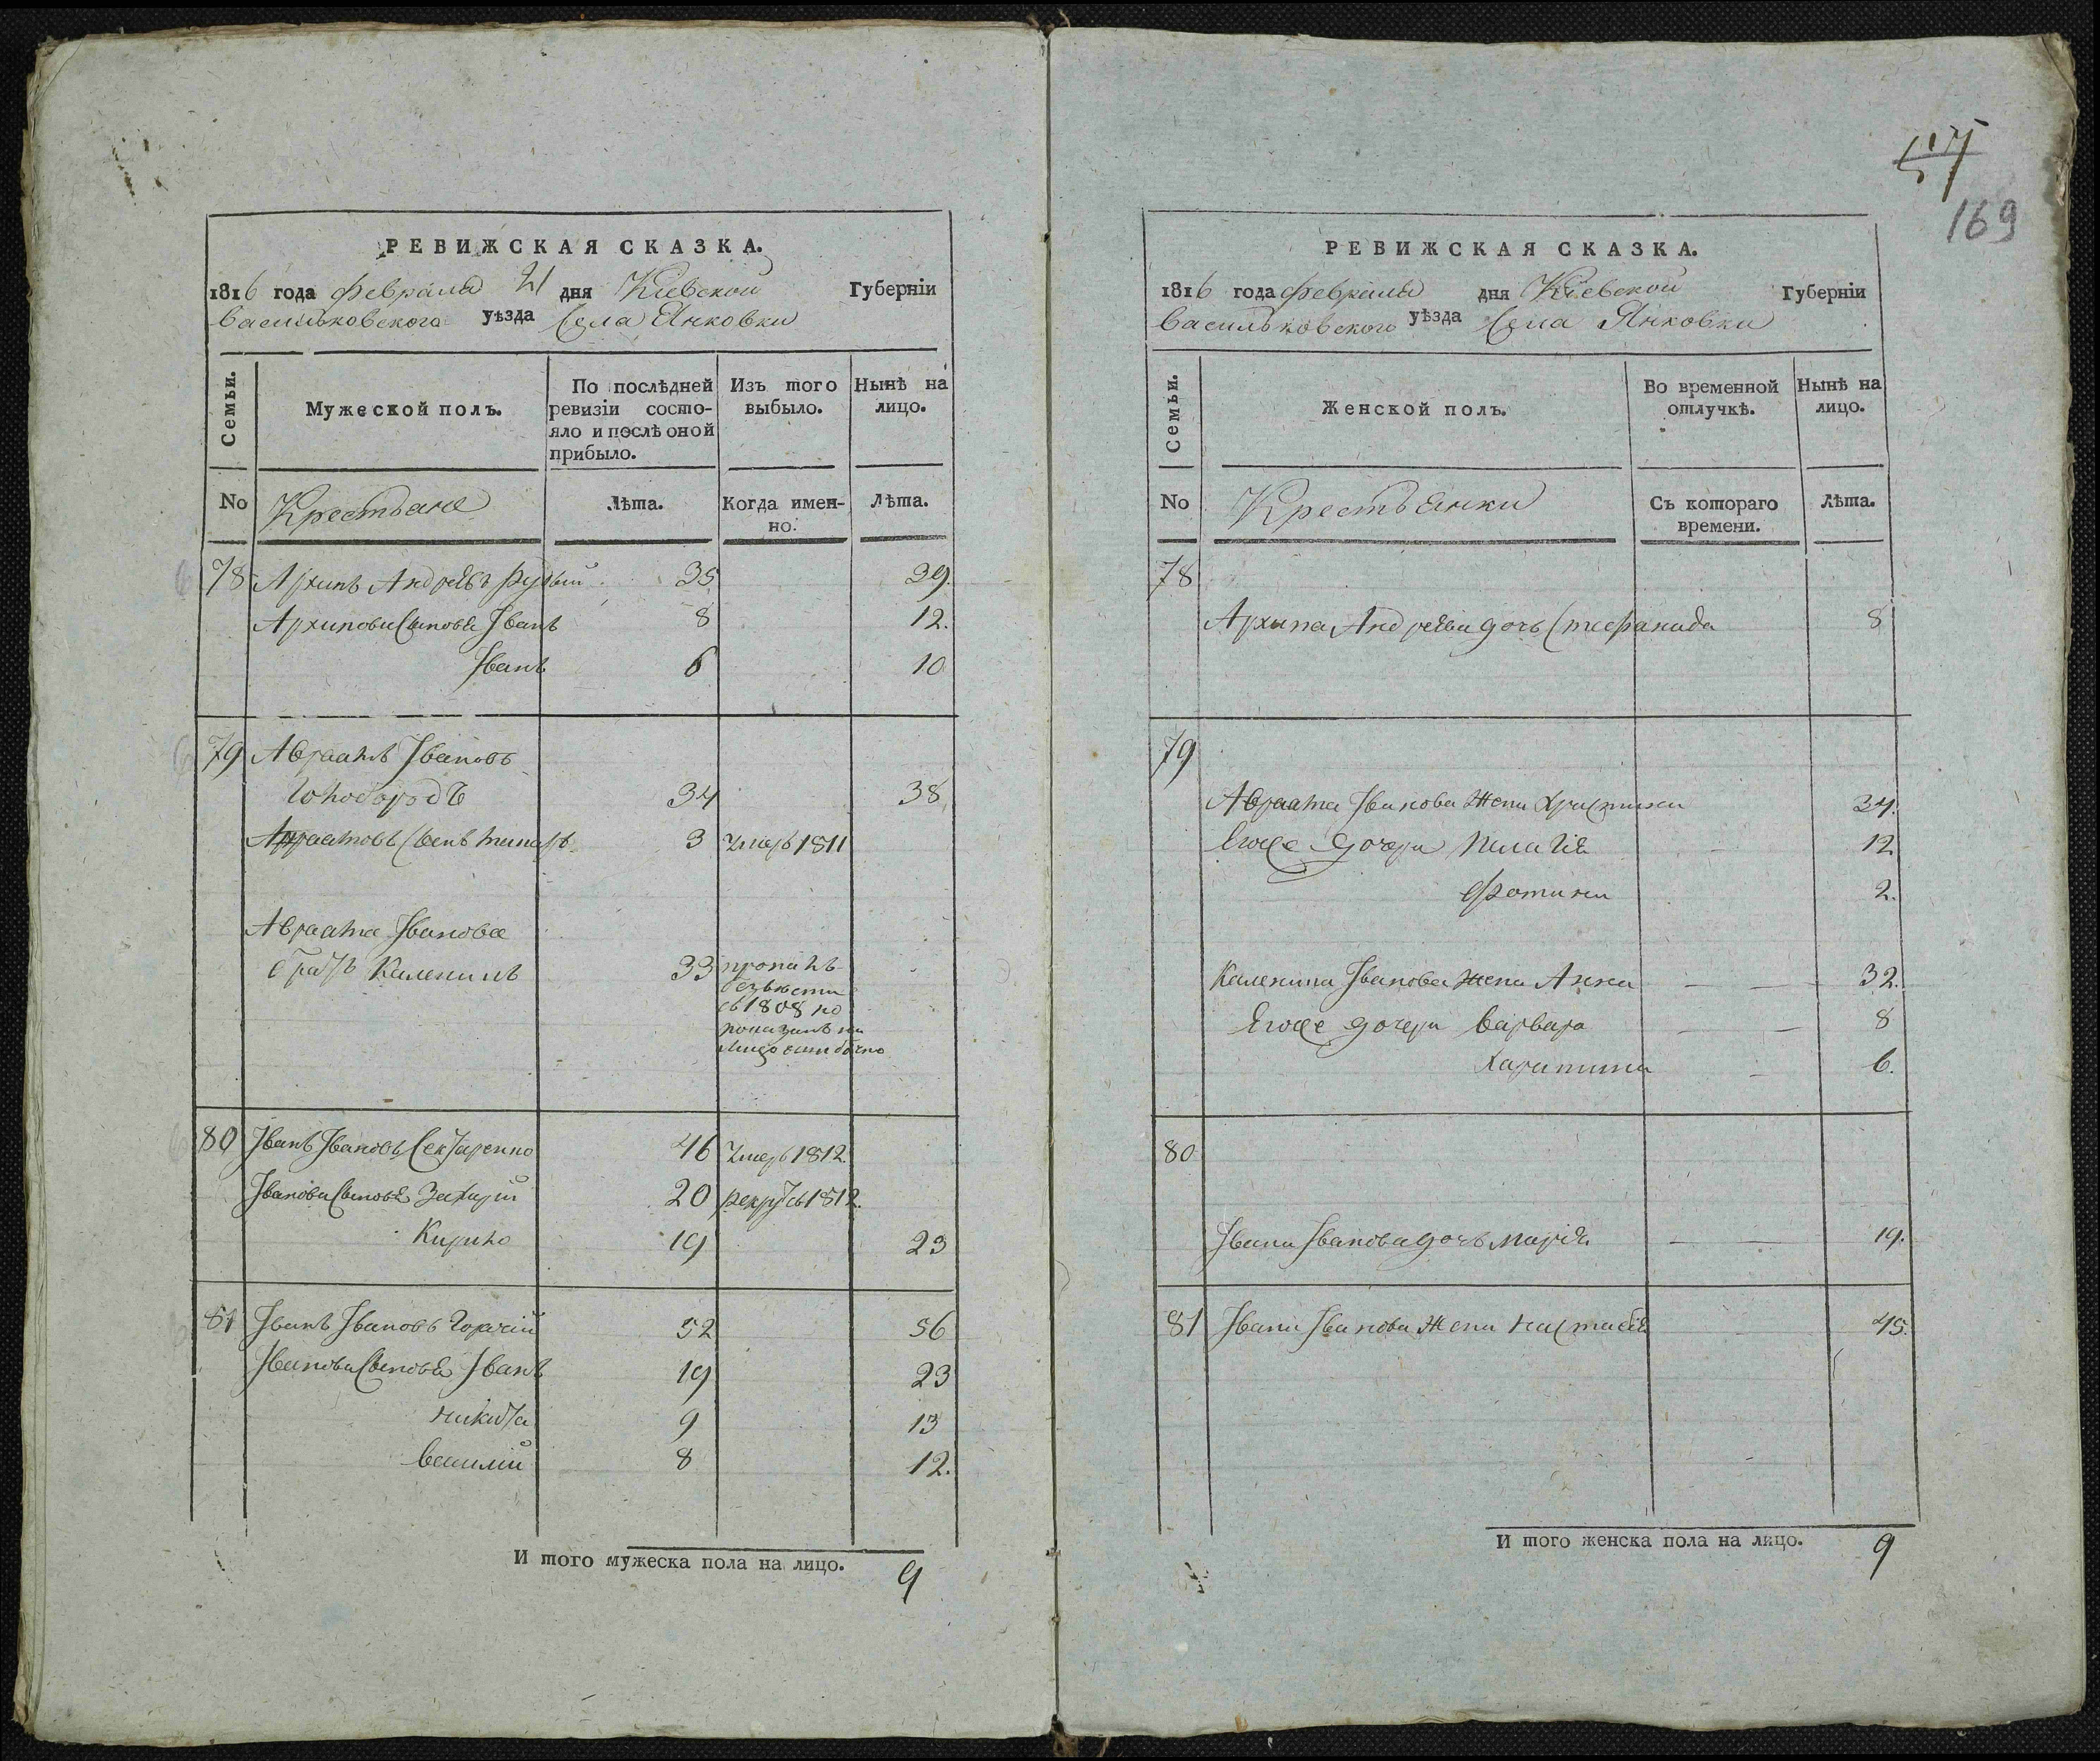 РЕВИЖСКАЯ СКАЗКА.
1816 года Февраля 21 дня Кіевской Губерніи
Васильковского уѣзда Села Янковки
Семьи.
Мужеской полъ.
По послѣдней ревизіи состо-
яло и послѣ оной
прибыло.
Изъ того
выбыло.
Нынѣ на
лицо.
No
Крестьяне
Лѣта.
Когда имен-
но.
Лѣта.
78 Архипъ Андреевъ Рудый 35 39.
Архипова Сыновя Іванъ 8 12.
Іванъ 6 10
79 Авраамъ Івановъ
34 38
Авраамовъ Сынъ 3 умеръ 1811
Авраама Іванова
братъ Каленикъ 33 пропалъ
безвѣсти
съ 1808 но
показанъ на
лицо ошибочно
80 Іванъ Івановъ 46 умеръ 1812
Іванова Сыновя Захарій 20 рекрутъ 1812.
Кирило 19 23
81 Іванъ Івановъ Горячій 52 56
Іванова Сыновя Іванъ 19 23
Никита 9 13
Василій 8 12.
И того мужеска пола на лицо. 9
517
169
РЕВИЖСКАЯ СКАЗКА.
1816 года Февраля дня Кіевской Губерніи
Васильковского уѣзда Села Янковки
Семьи.
Женской полъ.
Во временной
отлучкѣ.
Нынѣ на
лицо.
No
Крестьянки
Съ котораго
времени.
Лѣта.
78
Архипа Андреева дочь Стефанида 8
79
Авраама Іванова Жена Христина 34.
Егоже дочери Палагія 12
Фотина 2.
Каленика Іванова жена Анна 32.
Егоже дочери Варвара 8
Харитина 6.
80
Івана Іванова дочь Марія 19.
81 Івана Іванова Жена Настасія 45.
И того женска пола на лицо. 9